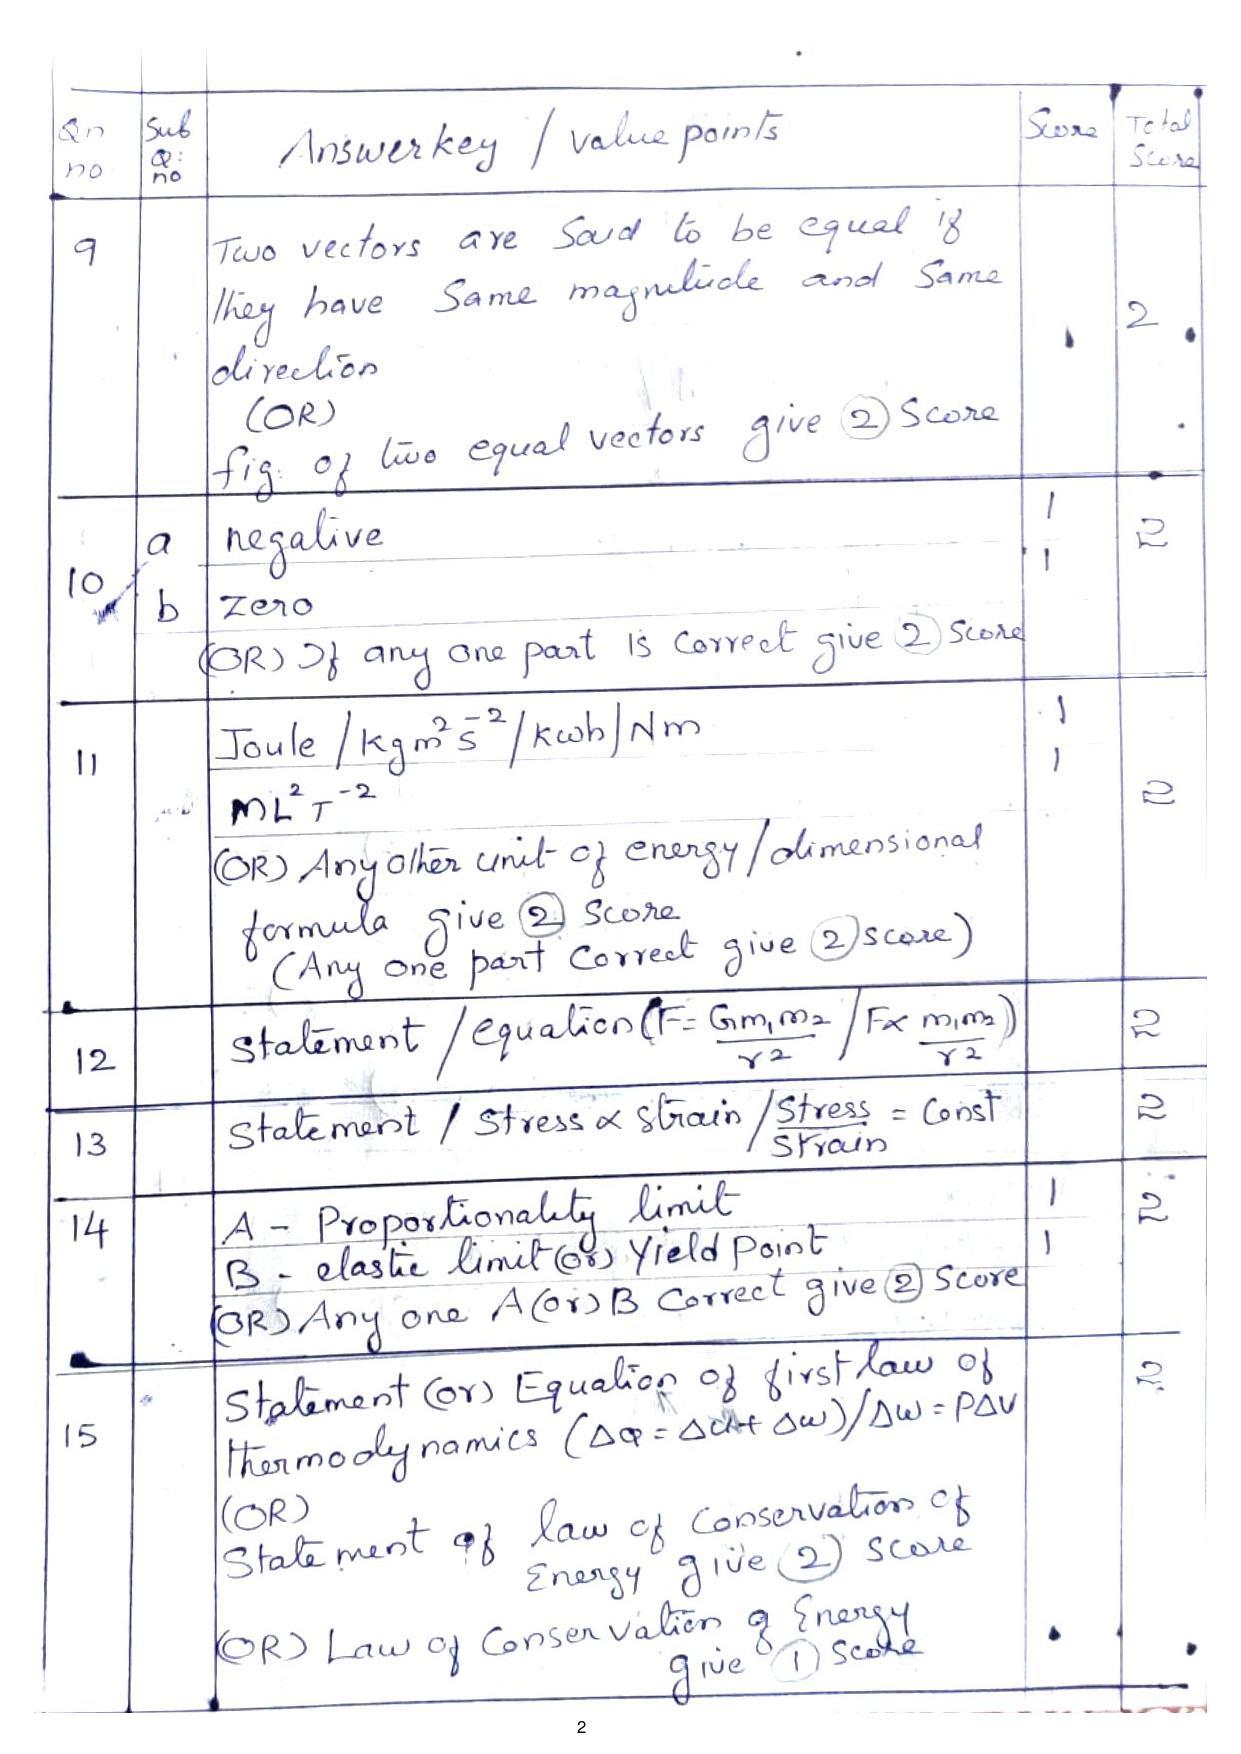 Qn no
Sub Q: no
Answer key / value points
Score
Total Score
9
Two vectors are said to be equal if
they have same magnitude and same
direction
2
(OR)
fig. of two equal vectors give ② Score
10
a
negative
1
2
b
zero
1
(OR) If any one part is correct give ② Score
11
Joule / kgm²s⁻² / kwh / Nm
1
ML²T⁻²
1
2
(OR) Any other unit of energy / dimensional
formula give ② score
(Any one part correct give ② score)
12
Statement / equation (F = Gm₁m₂/r² / F ∝ m₁m₂/r²)
2
13
Statement / Stress ∝ strain / Stress/Strain = Const
2
14
A - Proportionality limit
1
2
B - elastic limit (or) Yield Point
1
(OR) Any one A (or) B Correct give ② Score
15
Statement (or) Equation of first law of
2
thermodynamics (ΔQ = ΔU + ΔW) / ΔW = PΔV
(OR)
Statement of law of conservation of
Energy give ② score
(OR) Law of Conservation of Energy
give ① Score
2